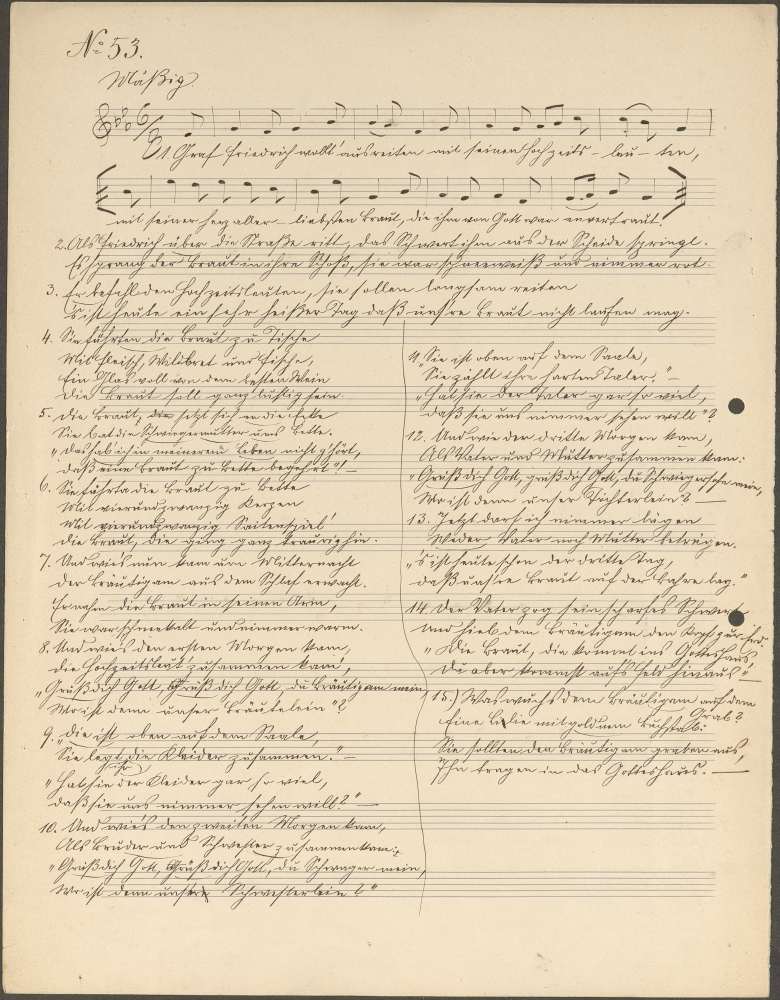 No 53.
Mäßig.
1. Graf Friedrich wollt' ausreiten mit seinen Hochzeits - leu - ten,
mit seiner herzaller - liebsten Braut, die ihm von Gott war anvertraut.
2. Als Friedrich über die Straße ritt, das Schwert ihm aus der Scheide springt.
Es sprang der Braut in ihre Schoß, sie war schneeweiß und nimmer rot.
3. Er befahl den Hochzeitsleuten, sie sollen langsam reiten
's ist heute ein sehr heißer Tag daß unsre Braut nicht laufen mag.
4. Sie führten die Braut zu Tische
Mit Fleisch, Wildbret und Fische,
Ein Glas voll von dem besten Wein
Die Braut soll ganz lustig sein.
5. Die Braut, die setzt sich in die Ecke
Sie bat die Schwiegermutter ums Bette.
"Das hab ich in meinerem Leben nicht g'hört,
daß eine Braut zu Bette begehrt"! —
6. Sie führte die Braut zu Bette
Mit vierundzwanzig Kerzen
Mit vierundzwanzig Saitenspiel
Die Braut, die ging ganz traurig hin.
7. Und wie's nun kam um Mitternacht
Der Bräutigam aus dem Schlaf erwacht.
Er nahm die Braut in seinen Arm,
Sie war schneekalt und nimmer warm.
8. Und wie's den ersten Morgen kam,
die Hochzeitsleut' zusammen kam',
"Grüß dich Gott, Grüß dich Gott, du Bräutigam mein,
Wo ist denn unser Bräutelein"?
9. "Die ist oben auf dem Saale,
Sie legt ihre Kleider zusammen." —
"Hat sie der Kleider gar so viel,
daß sie uns nimmer sehen will?" —
10. Und wie's den zweiten Morgen kam,
Als Bruder und Schwester zusammen kam:
"Grüß dich Gott, Grüß dich Gott, du Schwager mein,
Wo ist denn unser Schwesterlein?"
11. "Sie ist oben auf dem Saale,
Sie zählt ihre harten Taler." —
"Hat sie der Taler gar so viel,
daß sie uns nimmer sehen will"?
12. Und wie der dritte Morgen kam,
Als Vater und Mutter zusammen kam:
"Grüß dich Gott, grüß dich Gott, du Schwiegersohn mein,
Wo ist denn unser Töchterlein? —
13. Jetzt darf ich nimmer lügen
Weder Vater noch Mutter betrügen.
"'s ist heute schon der dritte Tag,
daß unsre Braut auf der Bahre lag."
14. Der Vater zog sein scharfes Schwert
Und hieb dem Bräutigam den Kopf zur Erd.
"Die Braut, die kommt ins Gotteshaus,
Du aber kommst aufs Feld hinaus" —
15.) Was wuchs dem Bräutigam auf dem Grab?
Eine Lilie mit goldnem Buchstab:
Sie sollten den Bräutigam graben aus,
Ihn tragen in das Gotteshaus. —